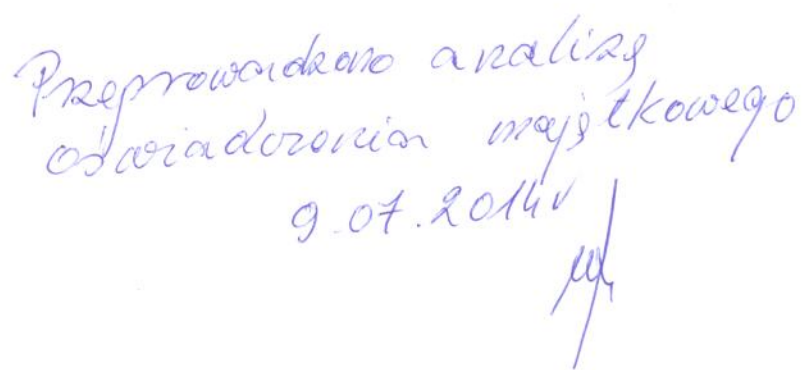 Przeprowadzono analizę
oświadczenia majątkowego
9.07.2014r